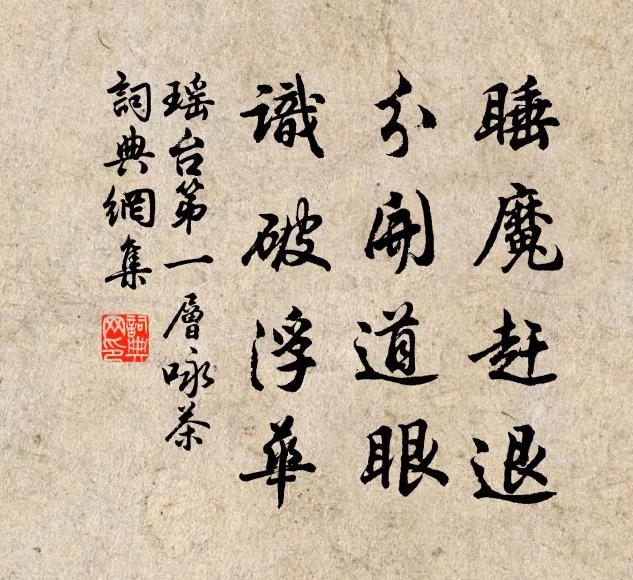 睡魔赶退
分開道眼
識破浮華
瑶台第一層咏茶
詞典網集
詞典
网印